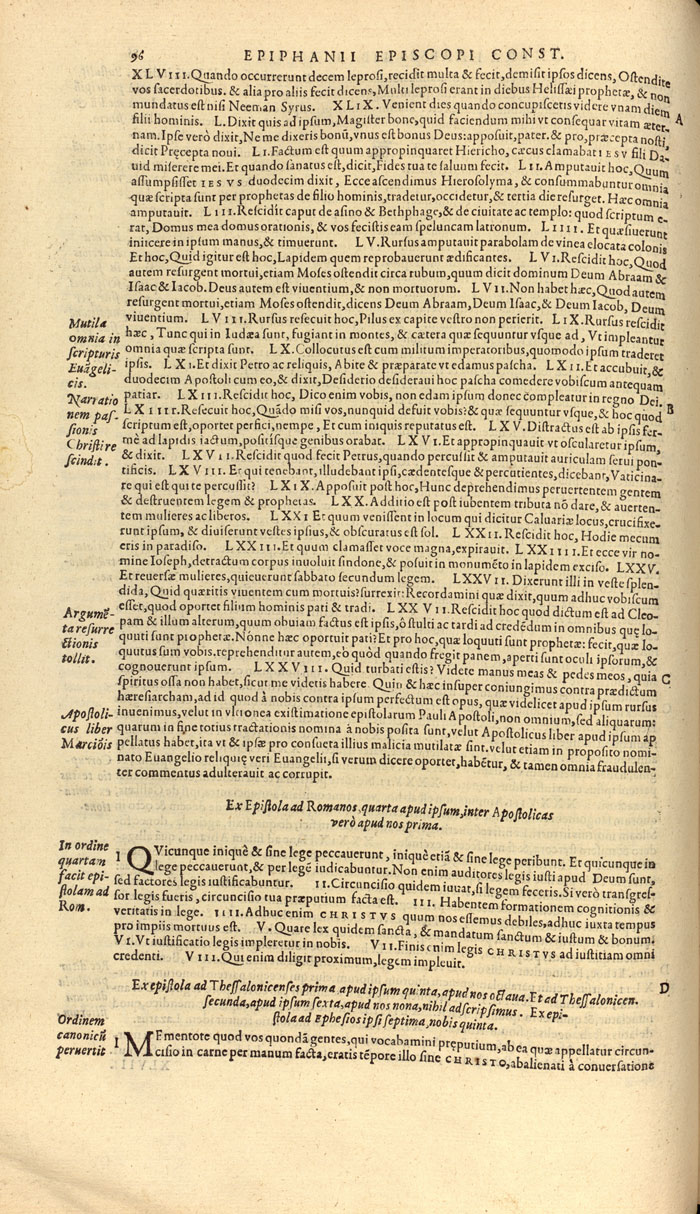 96
EPIPHANII EPISCOPI CONST.
XLVIII. Quando occurrerunt decem leprosi, recidit multa & fecit, demisit ipsos dicens, Ostendite
vos sacerdotibus. & alia pro aliis fecit dicens, Multi leprosi erant in diebus Helissæi prophetæ, & non
mundatus est nisi Neeman Syrus. XLIX. Venient dies quando concupiscetis videre vnam diem
filii hominis. L. Dixit quis ad ipsum, Magister bonc, quid faciendum mihi vt consequar vitam æter-
A
nam. Ipse verò dixit, Ne me dixeris bonū, vnus est bonus Deus: apposuit, pater. & pro, præcepta nosti,
dicit Pręcepta noui. LI. Factum est quum appropinquaret Hiericho, cæcus clamabat IESV fili Da-
uid miserere mei. Et quando sanatus est, dicit, Fides tua te saluum fecit. LII. Amputauit hoc, Quum
assumpsisset IESVS duodecim dixit, Ecce ascendimus Hierosolyma, & consummabuntur omnia
quæ scripta sunt per prophetas de filio hominis, tradetur, occidetur, & tertia die resurget. Hæc omnia
amputauit. LIII. Rescidit caput de asino & Bethphage, & de ciuitate ac templo: quod scriptum e-
rat, Domus mea domus orationis, & vos fecistis eam speluncam latronum. LIIII. Et quæsiuerunt
iniicere in ipsum manus, & timuerunt. LV. Rursus amputauit parabolam de vinea elocata colonis
Et hoc, Quid igitur est hoc, Lapidem quem reprobauerunt ædificantes. LVI. Rescidit hoc, Quod
autem resurgent mortui, etiam Moses ostendit circa rubum, quum dicit dominum Deum Abraam &
Isaac & Iacob. Deus autem est viuentium, & non mortuorum. LVII. Non habet hæc, Quod autem
resurgent mortui, etiam Moses ostendit, dicens Deum Abraam, Deum Isaac, & Deum Iacob, Deum
viuentium. LVIII. Rursus resecuit hoc, Pilus ex capite vestro non perierit. LIX. Rursus rescidit
Mutila
omnia in
scripturis
Euāgeli-
cis.
hæc, Tunc qui in Iudæa sunt, fugiant in montes, & cætera quæ sequuntur vsque ad, Vt impleantur
omnia quæ scripta sunt. LX. Collocutus est cum militum imperatoribus, quomodo ipsum traderet
ipsis. LXI. Et dixit Petro ac reliquis, Abite & præparate vt edamus pascha. LXII. Et accubuit, &
duodecim Apostoli cum eo, & dixit, Desiderio desideraui hoc pascha comedere vobiscum antequam
Narratio
nem pas-
sionis
Christi re
scindit.
patiar. LXIII. Rescidit hoc, Dico enim vobis, non edam ipsum donec compleatur in regno Dei.
LXIIII. Resecuit hoc, Quādo misi vos, nunquid defuit vobis? & quæ sequuntur vsque, & hoc quod
B
scriptum est, oportet perfici, nempe, Et cum iniquis reputatus est. LXV. Distractus est ab ipsis fer-
mè ad lapidis iactum, positisque genibus orabat. LXVI. Et appropinquauit vt oscularetur ipsum,
& dixit. LXVII. Rescidit quod fecit Petrus, quando percussit & amputauit auriculam serui pon-
tificis. LXVIII. Et qui tenebant, illudebant ipsi, cædentesque & percutientes, dicebant, Vaticina-
re qui est qui te percussit? LXIX. Apposuit post hoc, Hunc deprehendimus peruertentem gentem
& destruentem legem & prophetas. LXX. Additio est post iubentem tributa nō dare, & auerten-
tem mulieres ac liberos. LXXI Et quum venissent in locum qui dicitur Caluariæ locus, crucifixe-
runt ipsum, & diuiserunt vestes ipsius, & obscuratus est sol. LXXII. Rescidit hoc, Hodie mecum
eris in paradiso. LXXIII. Et quum clamasset voce magna, expirauit. LXXIIII. Et ecce vir no-
mine Ioseph, detractum corpus inuoluit sindone, & posuit in monumēto in lapidem exciso. LXXV.
Et reuersæ mulieres, quieuerunt sabbato secundum legem. LXXVII. Dixerunt illi in veste splen-
dida, Quid quæritis viuentem cum mortuis? surrexit: Recordamini quæ dixit, quum adhuc vobiscum
Argumē-
ta resurre
ctionis
tollit.
esset, quod oportet filium hominis pati & tradi. LXXVII. Rescidit hoc quod dictum est ad Cleo-
pam & illum alterum, quum obuiam factus est ipsis, ô stulti ac tardi ad credēdum in omnibus quę lo-
quuti sunt prophetæ. Nonne hæc oportuit pati? Et pro hoc, quæ loquuti sunt prophetæ: fecit, quæ lo-
quutus sum vobis. reprehenditur autem, eò quòd quando fregit panem, aperti sunt oculi ipsorum, &
cognouerunt ipsum. LXXVIII. Quid turbati estis? Videte manus meas & pedes meos, quia
C
spiritus ossa non habet, sicut me videtis habere. Quin & hæc insuper coniungimus contra prædictum
hæresiarcham, ad id quod à nobis contra ipsum perfectum est opus, quæ videlicet apud ipsum rursus
Apostoli-
cus liber
Marciōis
inuenimus, velut in vltionea existimatione epistolarum Pauli Apostoli, non omnium, sed aliquarum:
quarum in fine totius tractationis nomina à nobis posita sunt, velut Apostolicus liber apud ipsum ap
pellatus habet, ita vt & ipsæ pro consueta illius malicia mutilatæ sint. velut etiam in proposito nomi-
nato Euangelio reliquię veri Euangelii, si verum dicere oportet, habētur, & tamen omnia fraudulen-
ter commentus adulterauit ac corrupit.
Ex Epistola ad Romanos, quarta apud ipsum, inter Apostolicas
verò apud nos prima.
In ordine
quartam
facit epi-
stolam ad
Rom.
I QVicunque iniquè & sine lege peccauerunt, iniquè etiā & sine lege peribunt. Et quicunque in
lege peccauerunt, & per legē iudicabuntur. Non enim auditores legis iusti apud Deum sunt,
sed factores legis iustificabuntur. II. Circuncisio quidem iuuat, si legem feceris. Si verò transgres-
sor legis fueris, circuncisio tua præputium facta est. III. Habentem formationem cognitionis &
veritatis in lege. IIII. Adhuc enim CHRISTVS quum nos essemus debiles, adhuc iuxta tempus
pro impiis mortuus est. V. Quare lex quidem sancta, & mandatum sanctum & iustum & bonum.
VI. Vt iustificatio legis impleretur in nobis. VII. Finis enim legis CHRISTVS ad iustitiam omni
credenti. VIII. Qui enim diligit proximum, legem impleuit.
Ex epistola ad Thessalonicenses prima apud ipsum quinta, apud nos octaua. Et ad Thessalonicen.
D
secunda, apud ipsum sexta, apud nos nona, nihil adscripsimus. Ex epi-
stola ad Ephesios ipsi septima, nobis quinta.
Ordinem
canonicū
peruertit
I MEmentote quod vos quondā gentes, qui vocabamini pręputium, ab ea quæ appellatur circun-
cisio in carne per manum facta, eratis tēpore illo sine CHRISTO, abalienati à conuersatione